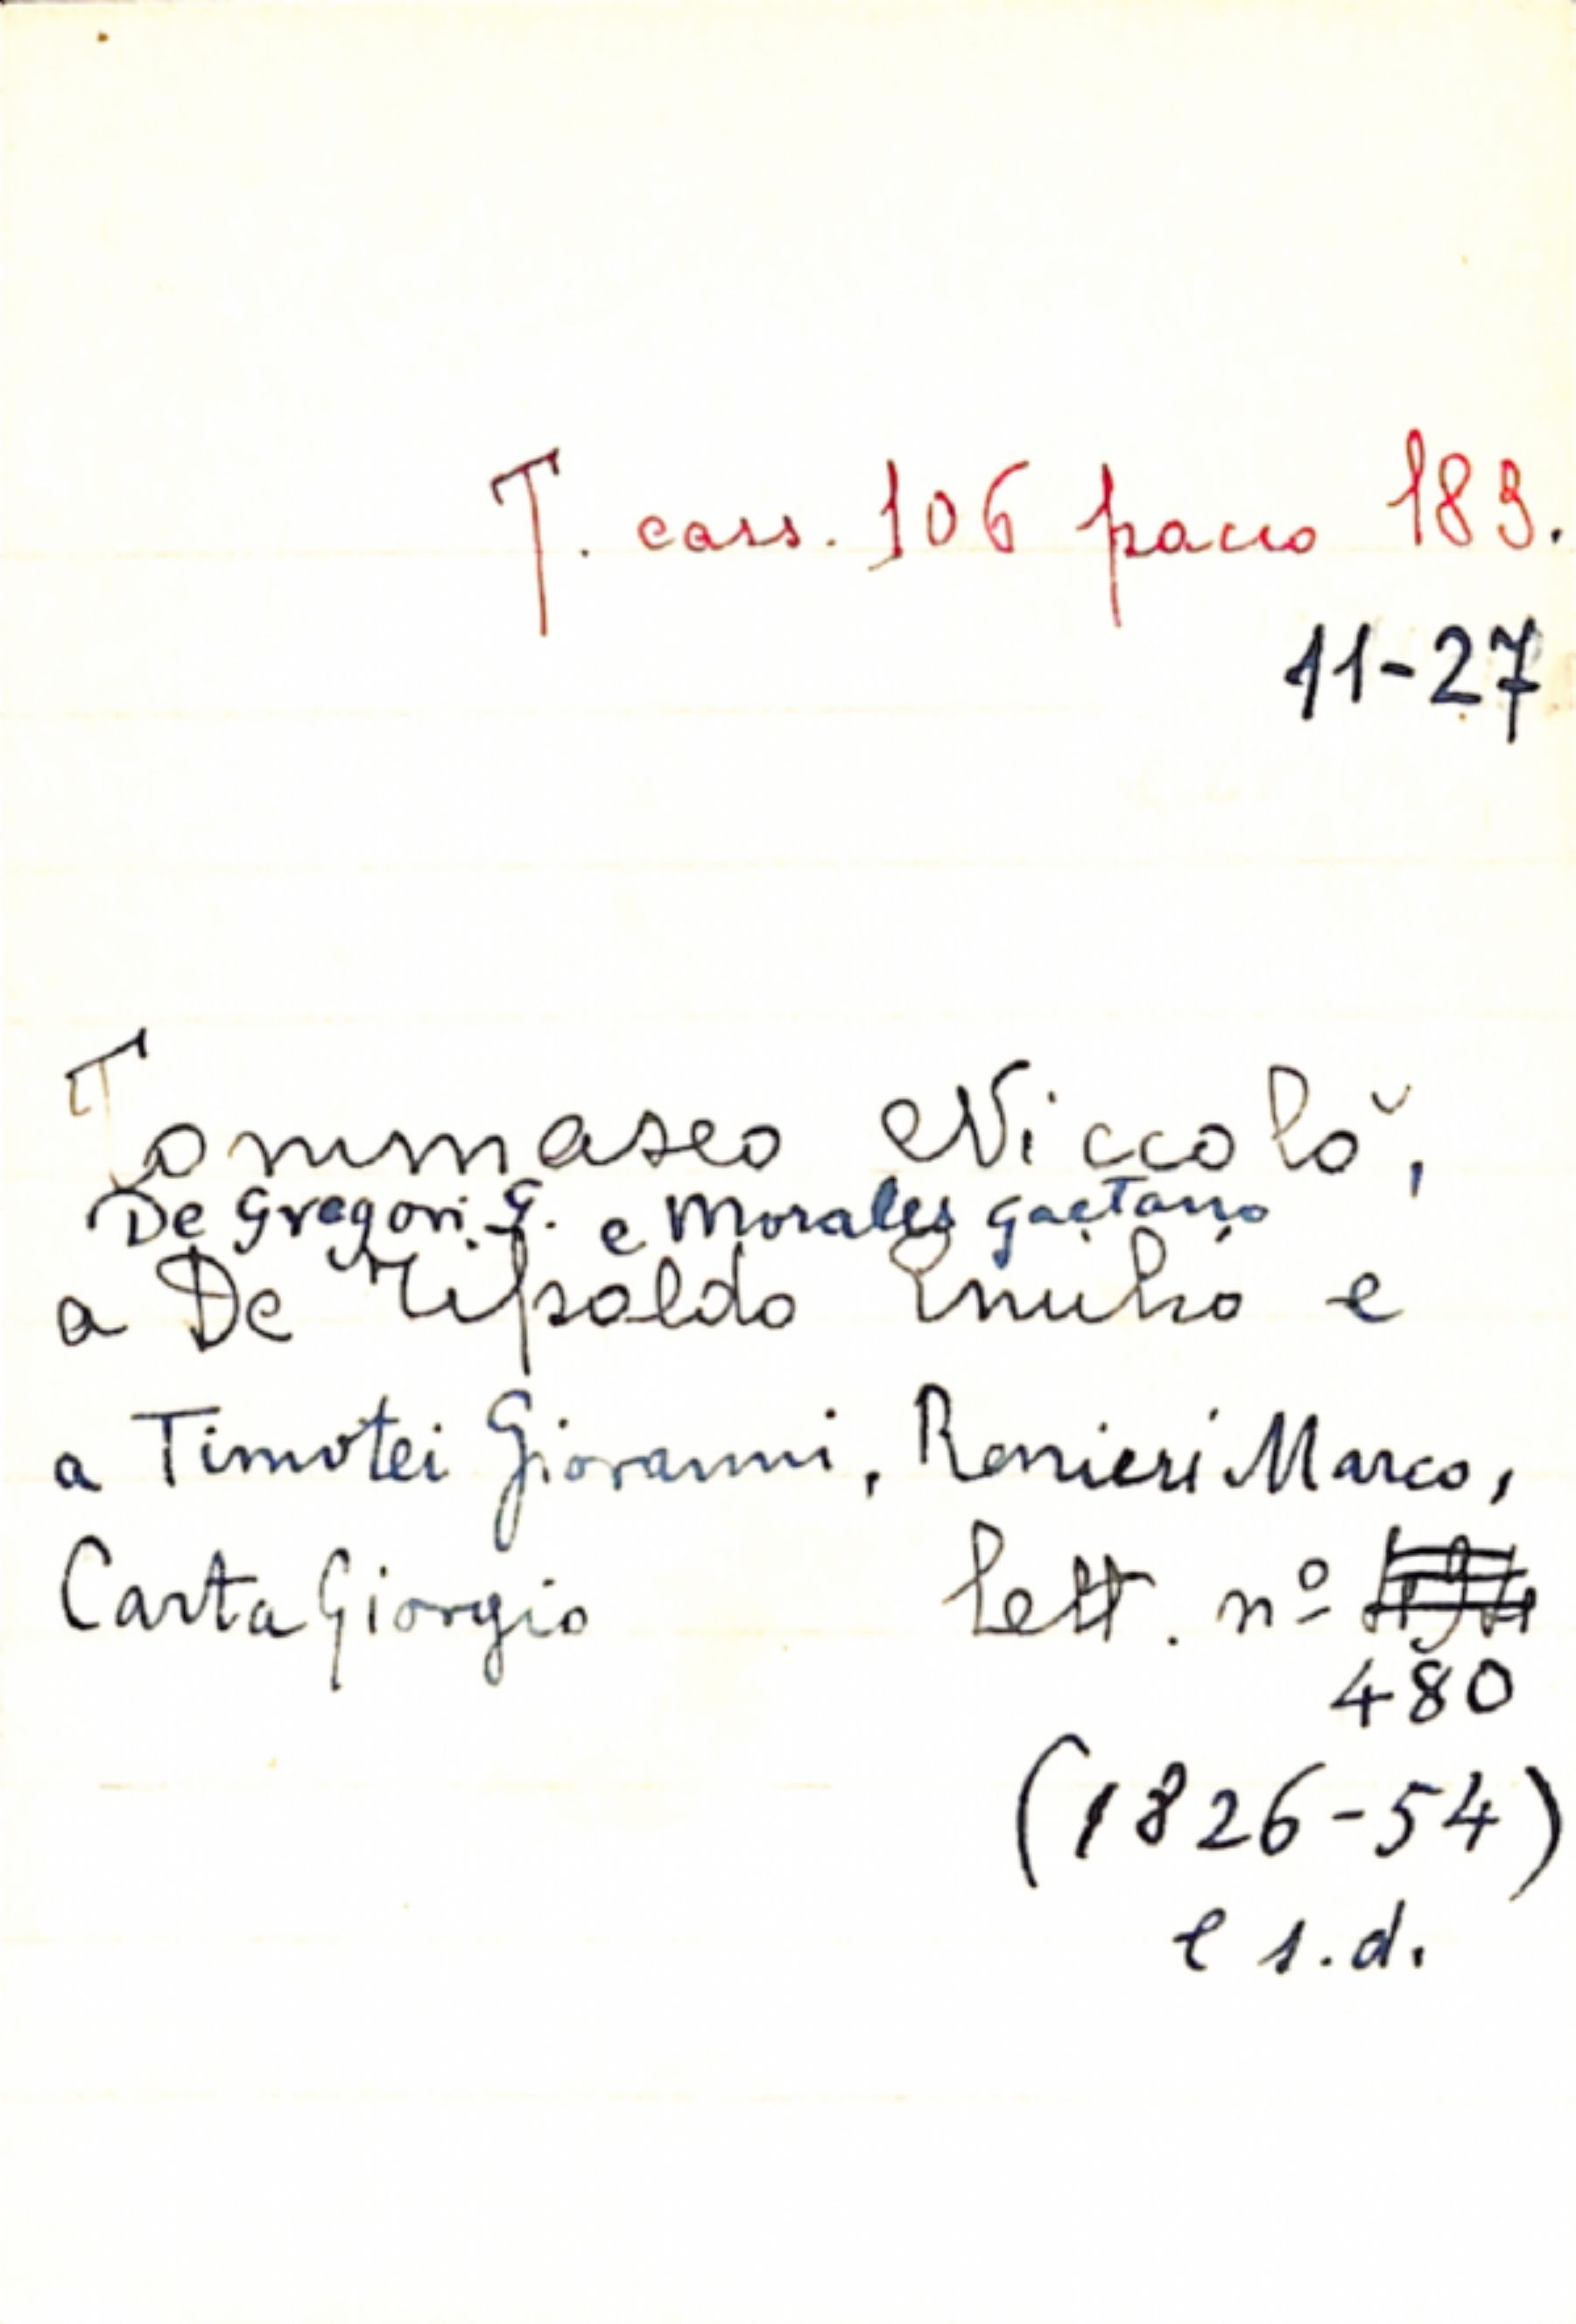 T. cass. 106 pacco 183.
11-27
Tommaseo Niccolò,
De Gregori G. e Morales Gaetano
a De Tipaldo Emilio e
a Timotei Giovanni, Renieri Marco,
Carta Giorgio lett. nº
480
(1826-54)
e s.d.